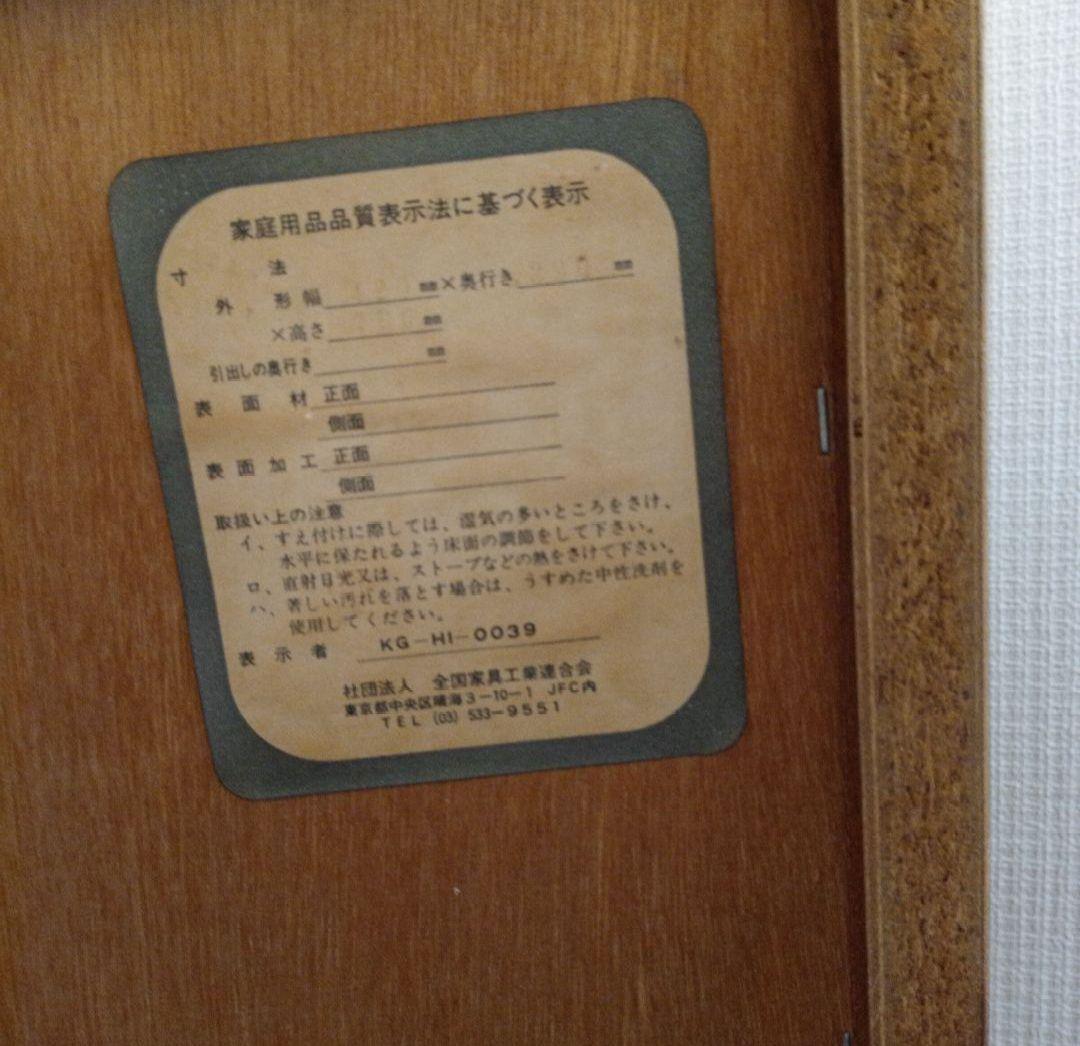 家庭用品品質表示法に基づく表示
寸 法
外 形 幅 mm×奥行き mm
×高さ mm
引出しの奥行き mm
表 面 材 正面
側面
表 面 加 工 正面
側面
取扱い上の注意
イ、すえ付けに際しては、湿気の多いところをさけ、
水平に保たれるよう床面の調節をして下さい。
ロ、直射日光又は、ストーブなどの熱をさけて下さい。
ハ、著しい汚れを落とす場合は、うすめた中性洗剤を
使用してください。
表 示 者 KG-HI-0039
社団法人 全国家具工業連合会
東京都中央区晴海3-10-1 JFC内
TEL (03) 533-9551